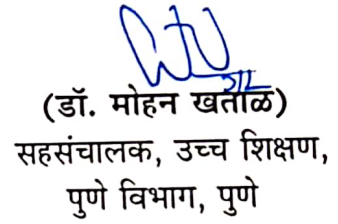 (डॉ. मोहन खताळ)
सहसंचालक, उच्च शिक्षण,
पुणे विभाग, पुणे